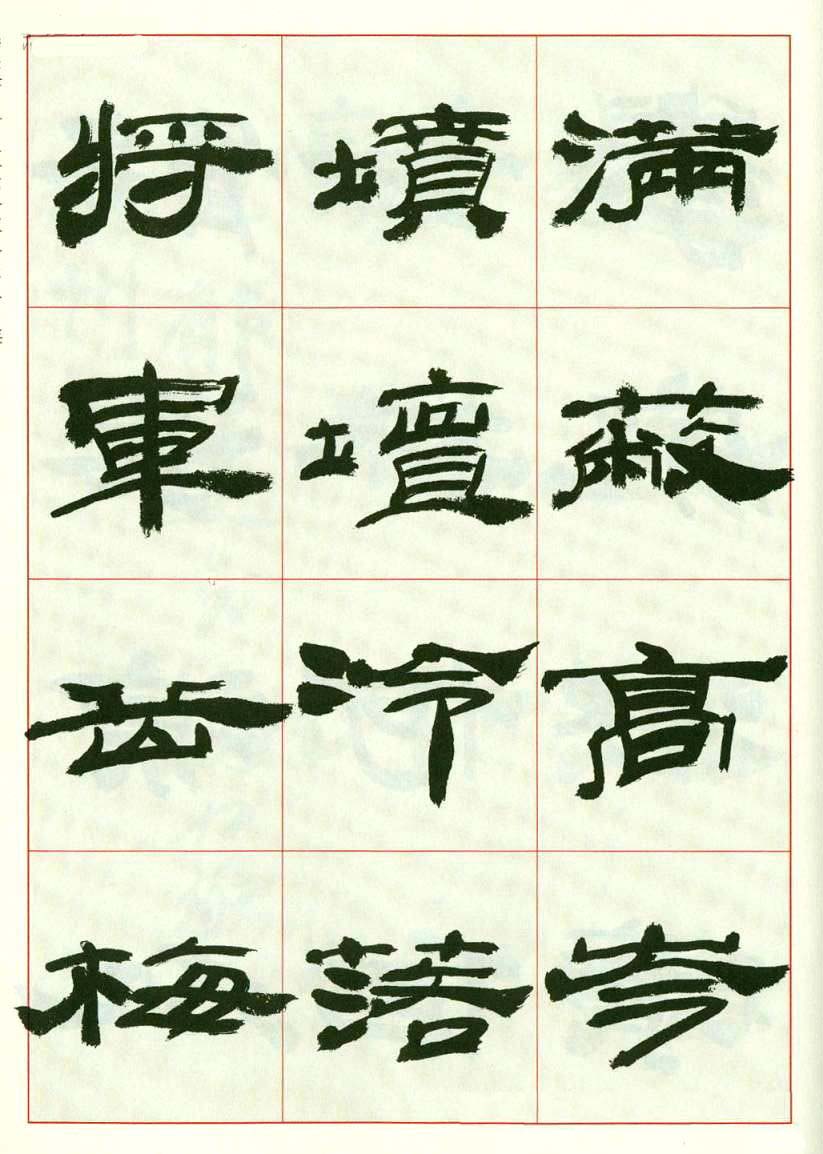 滿蔽高岑
墳壇冷落
將軍岳梅